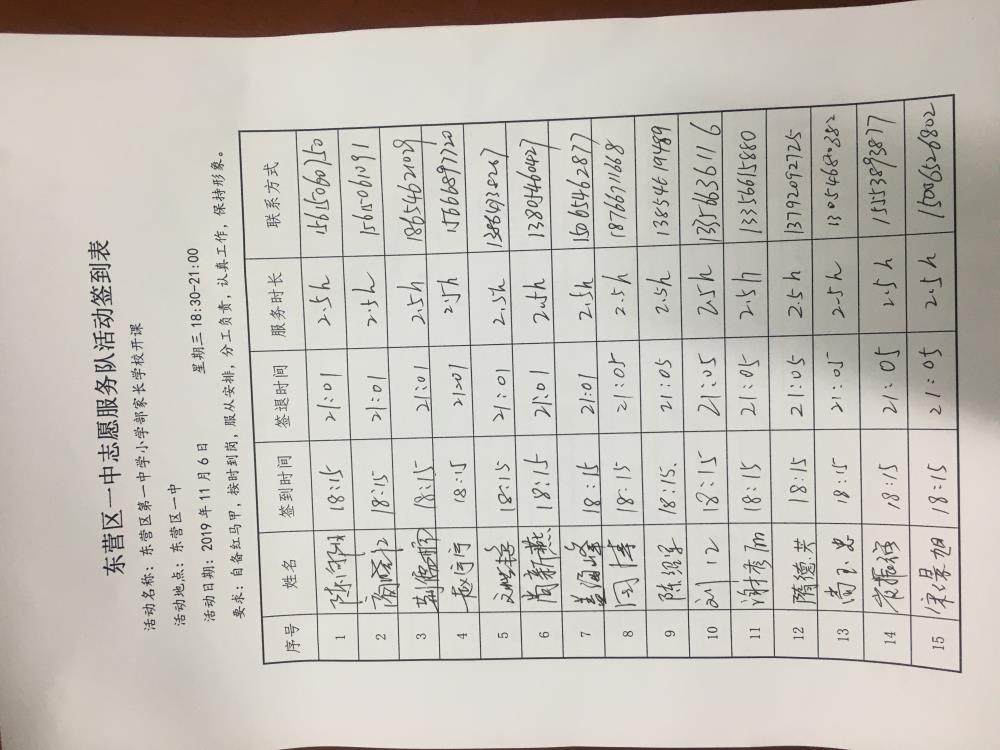 东营区一中志愿服务队活动签到表
活动名称：东营区第一中学小学部家长学校开课
活动地点：东营区一中
活动日期：2019年11月6日 星期三 18:30-21:00
要求：自备红马甲，按时到岗，服从安排，分工负责，认真工作，保持形象。
序号 姓名 签到时间 签退时间 服务时长 联系方式
1 18:15 21:01 2.5h 15615060750
2 18:15 21:01 2.5h 15615061091
3 18:15 21:01 2.5h 18654621029
4 18:15 21:01 2.5h 15666897720
5 18:15 21:01 2.5h
6 尚新燕 18:15 21:01 2.5h 13805460427
7 盖海峰 18:15 21:01 2.5h 15054462877
8 18:15 21:05 2.5h 18766711668
9 18:15. 21:05 2.5h 13854619489
10 18:15 21:05 2.5h 13356636116
11 谢秀丽 18:15 21:05 2.5h 13356615880
12 隋德共 18:15 21:05 2.5h 13792092725
13 尚玉忠 18:15 21:05 2.5h 13054680382
14 18:15 21:05 2.5h 15553893877
15 宋景旭 18:15 21:05 2.5h 15006526802